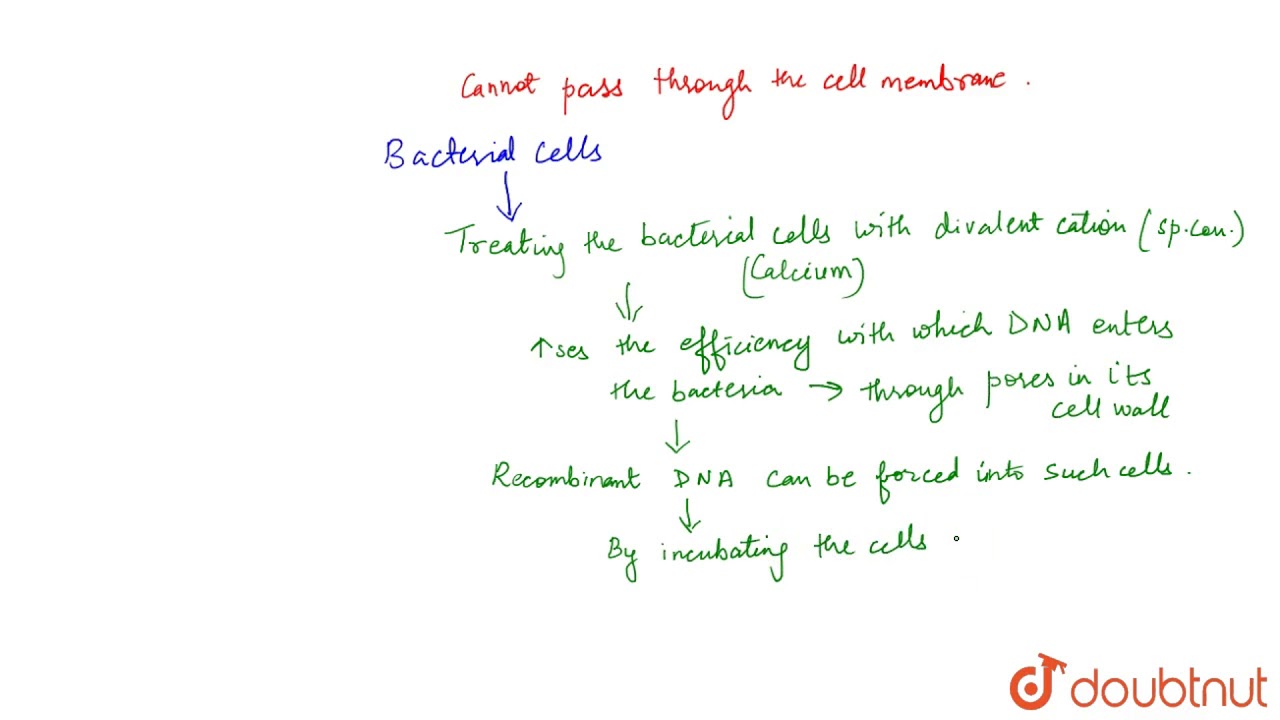 Cannot pass through the cell membrane.
Bacterial cells
Treating the bacterial cells with divalent cation (sp.con.)
(Calcium)
↑ses the efficiency with which DNA enters
the bacteria → through pores in its
cell wall
Recombinant DNA can be forced into such cells.
By incubating the cells
doubtnut